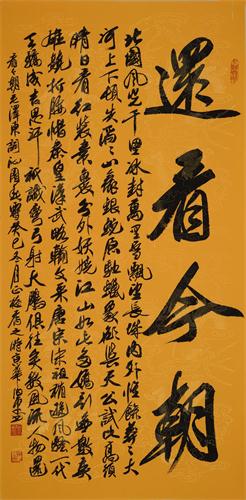 還看今朝
北國風光千里冰封萬里雪飄望長城內外惟餘莽莽大
河上下頓失滔滔山舞銀蛇原馳蠟象欲與天公試比高須
晴日看紅裝素裹分外妖嬈江山如此多嬌引無數英
雄競折腰惜秦皇漢武略輸文采唐宗宋祖稍遜風騷一代
天驕成吉思汗祇識彎弓射大鵰俱往矣數風流人物還
看今朝毛澤東詞沁園春雪癸巳冬月